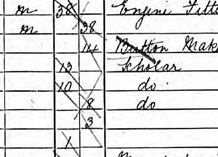 m 38 Engine Fitt
m 38
14 Button Mak
13 Scholar
10 do
8 do
3
1